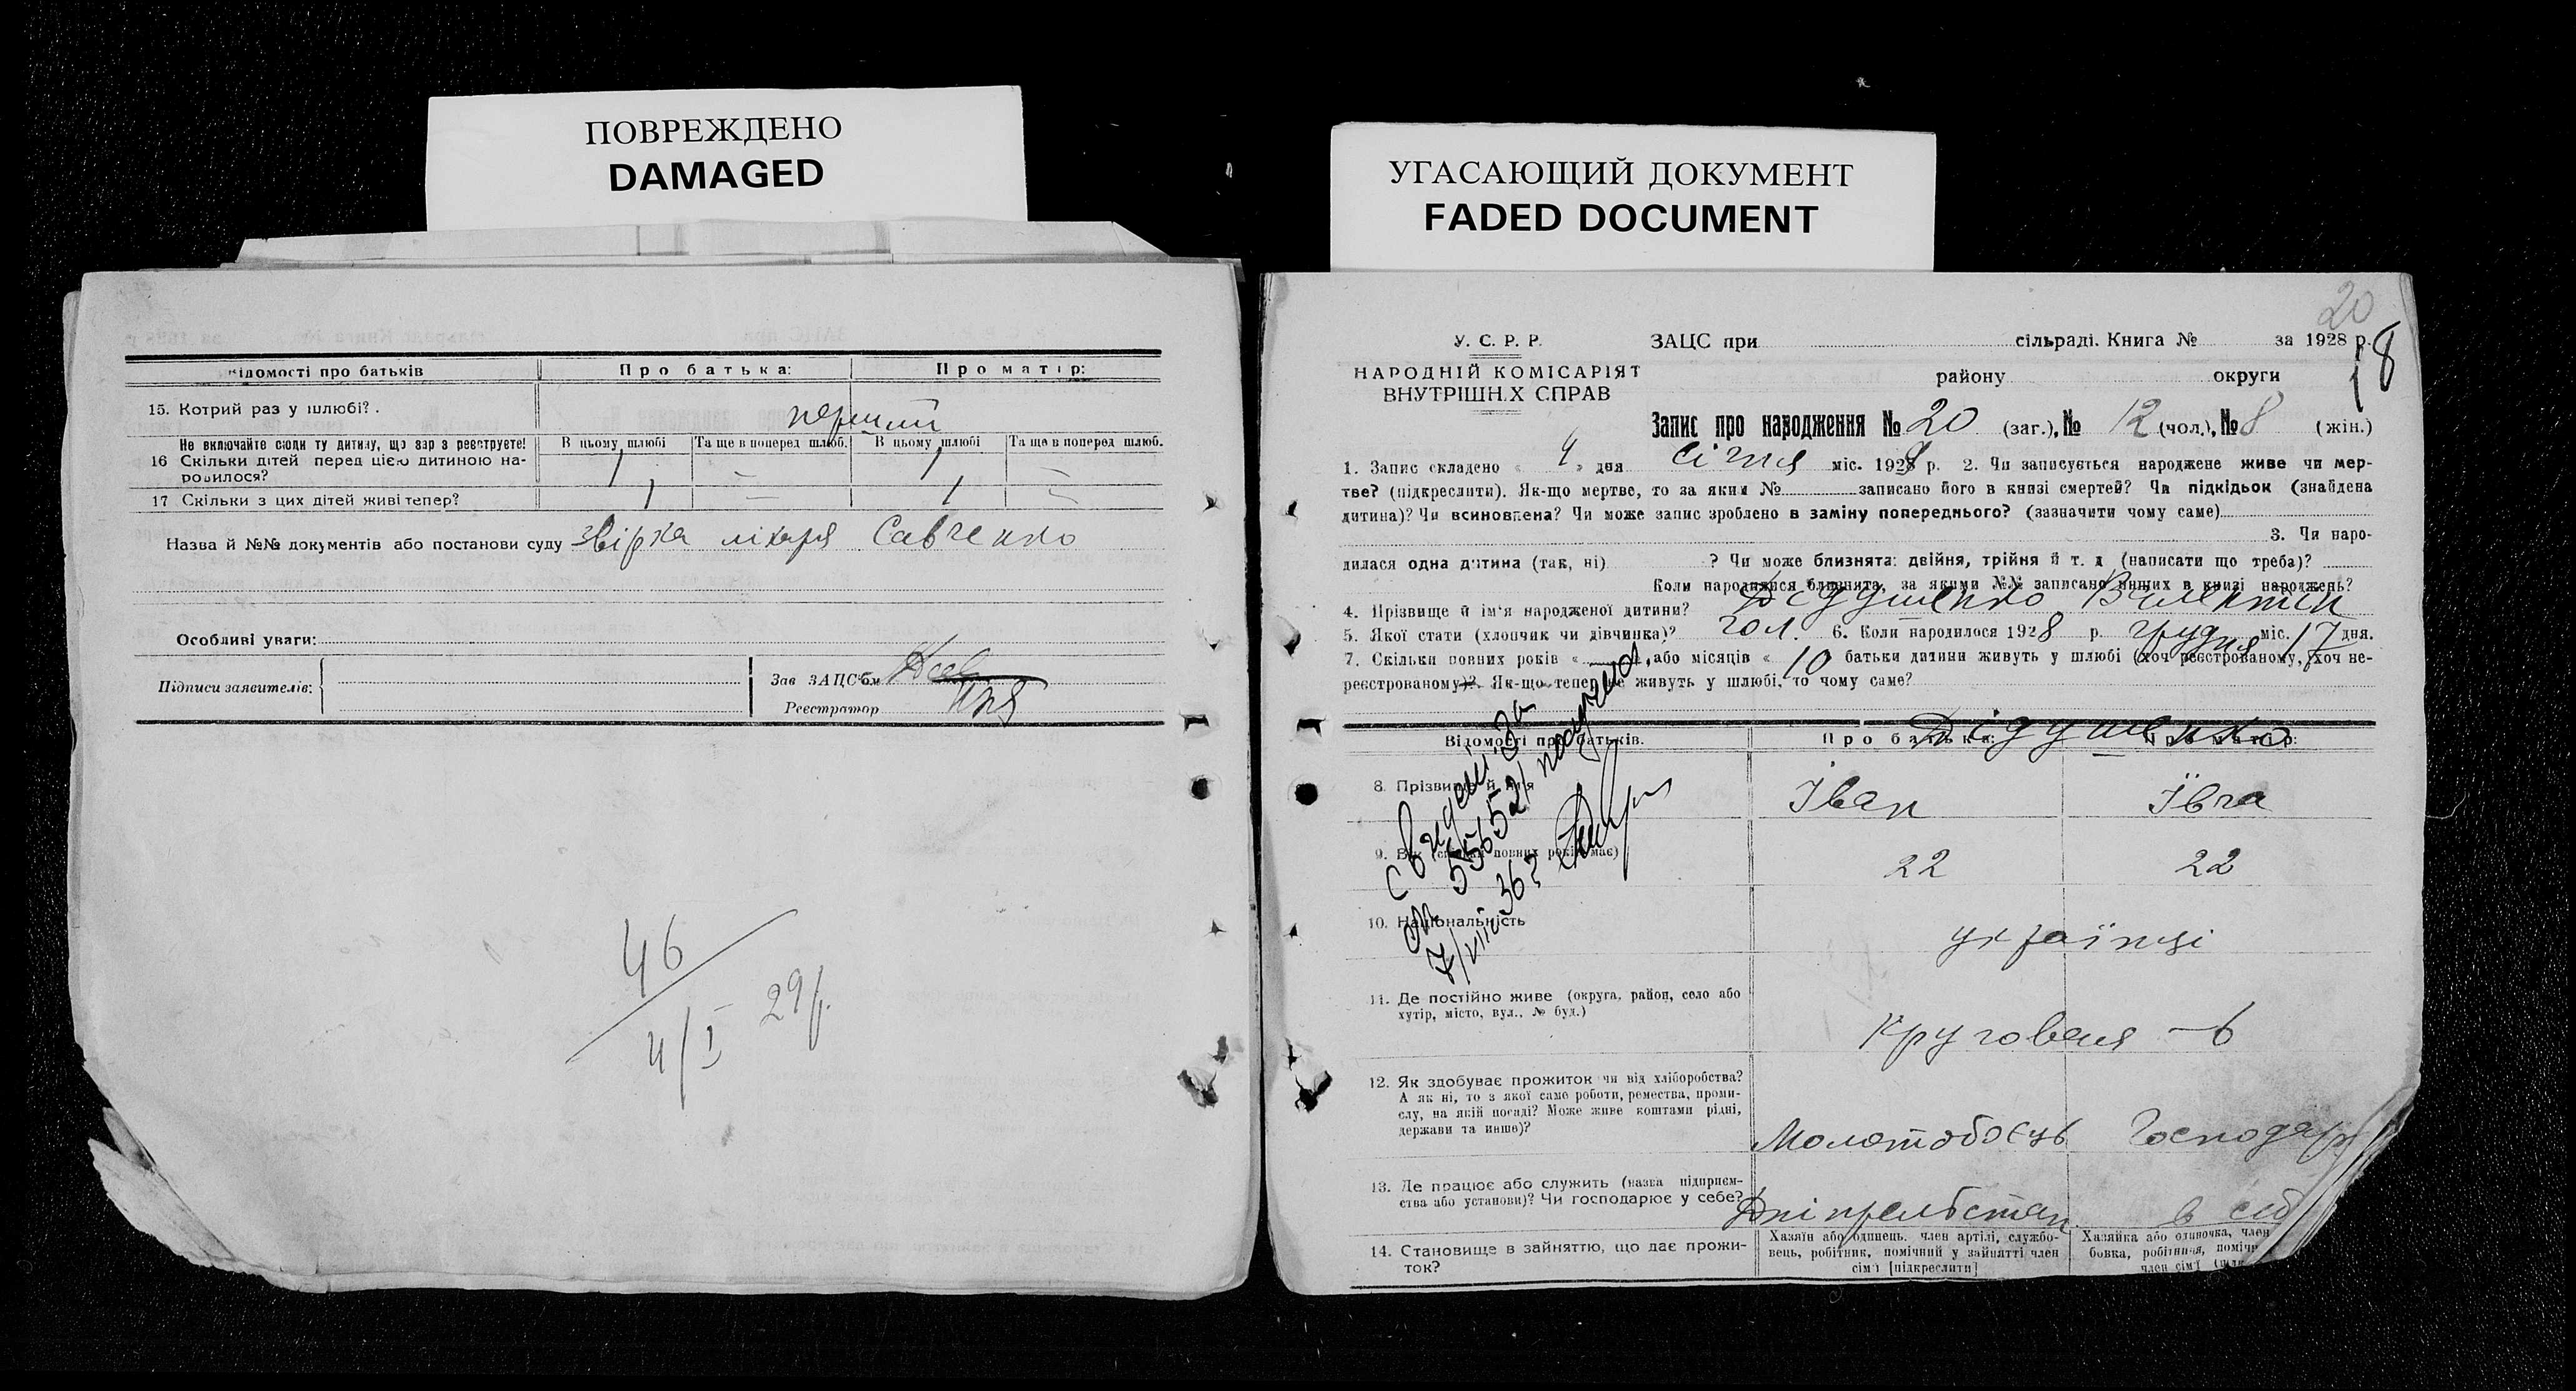 ПОВРЕЖДЕНО
DAMAGED
Відомості про батьків
Про батька:
Про матір:
15. Котрий раз у шлюбі?
перший
Не включайте сюди ту дитину, що зар з реєструєте!
В цьому шлюбі
Та ще в поперед шлюб.
В цьому шлюбі
Та ще в поперед шлюб.
16 Скільки дітей перед цією дитиною на-
родилося?
1 — 1 —
17 Скільки з цих дітей живі тепер?
1 — 1 —
Назва й №№ документів або постанови суду звірка лікаря Савченко
Особливі уваги:
Підписи заявителів:
Зав ЗАЦС'ом
Реєстратор
46
4/I 29р.
УГАСАЮЩИЙ ДОКУМЕНТ
FADED DOCUMENT
20
18
У. С. Р. Р.
НАРОДНІЙ КОМІСАРІЯТ
ВНУТРІШН.Х СПРАВ
ЗАЦС при сільраді. Книга № за 1928 р.
району округи
Запис про народження № 20 (заг.), № 12 (чол.), № 8 (жін.)
1. Запис складено « 4 » дня січня міс. 1929 р. 2. Чи записується народжене живе чи мер-
тве? (підкреслити). Як-що мертве, то за яким № записано його в книзі смертей? Чи підкідьок (знайдена
дитина)? Чи всиновлена? Чи може запис зроблено в заміну попереднього? (зазначити чому саме)
3. Чи наро-
дилася одна дитина (так, ні) ? Чи може близнята: двійня, трійня й т. д (написати що треба)?
Коли народилися близнята, за якими №№ записано инших в книзі народжень?
4. Прізвище й ім'я народженої дитини? Дідушенко Валентин
5. Якої стати (хлопчик чи дівчинка)? чол. 6. Коли народилося 1928 р. грудня міс. 17 дня.
7. Скільки повних років « — », або місяців « 10 батьки дитини живуть у шлюбі (хоч реєстрованому, хоч не-
реєстрованому)? Як-що тепер не живуть у шлюбі, то чому саме?
Відомості про батьків.
Про батька:
Про матір:
Дідушенко
8. Прізвище й ім'я
Іван
Івга
9. Вік (скільки повних років має)
22
22
10. Національність
українці
11. Де постійно живе (округа, район, село або
хутір, місто, вул., № буд.)
Кругована — 6
12. Як здобуває прожиток чи від хліборобства?
А як ні, то з якої саме роботи, ремества, проми-
слу, на якій посаді? Може живе коштами рідні,
держави та инше)?
Молотобоєць
Господар
13. Де працює або служить (назва підприєм-
ства або установи)? Чи господарює у себе?
в себ
14. Становище в зайняттю, що дає прожи-
ток?
Хазяїн або одинець, член артілі, службо-
вець, робітник, помічний у зайнятті член
сім'ї [підкреслити]
Хазяйка або одиночка, член
бовка, робітниця, помічн
член сім'ї